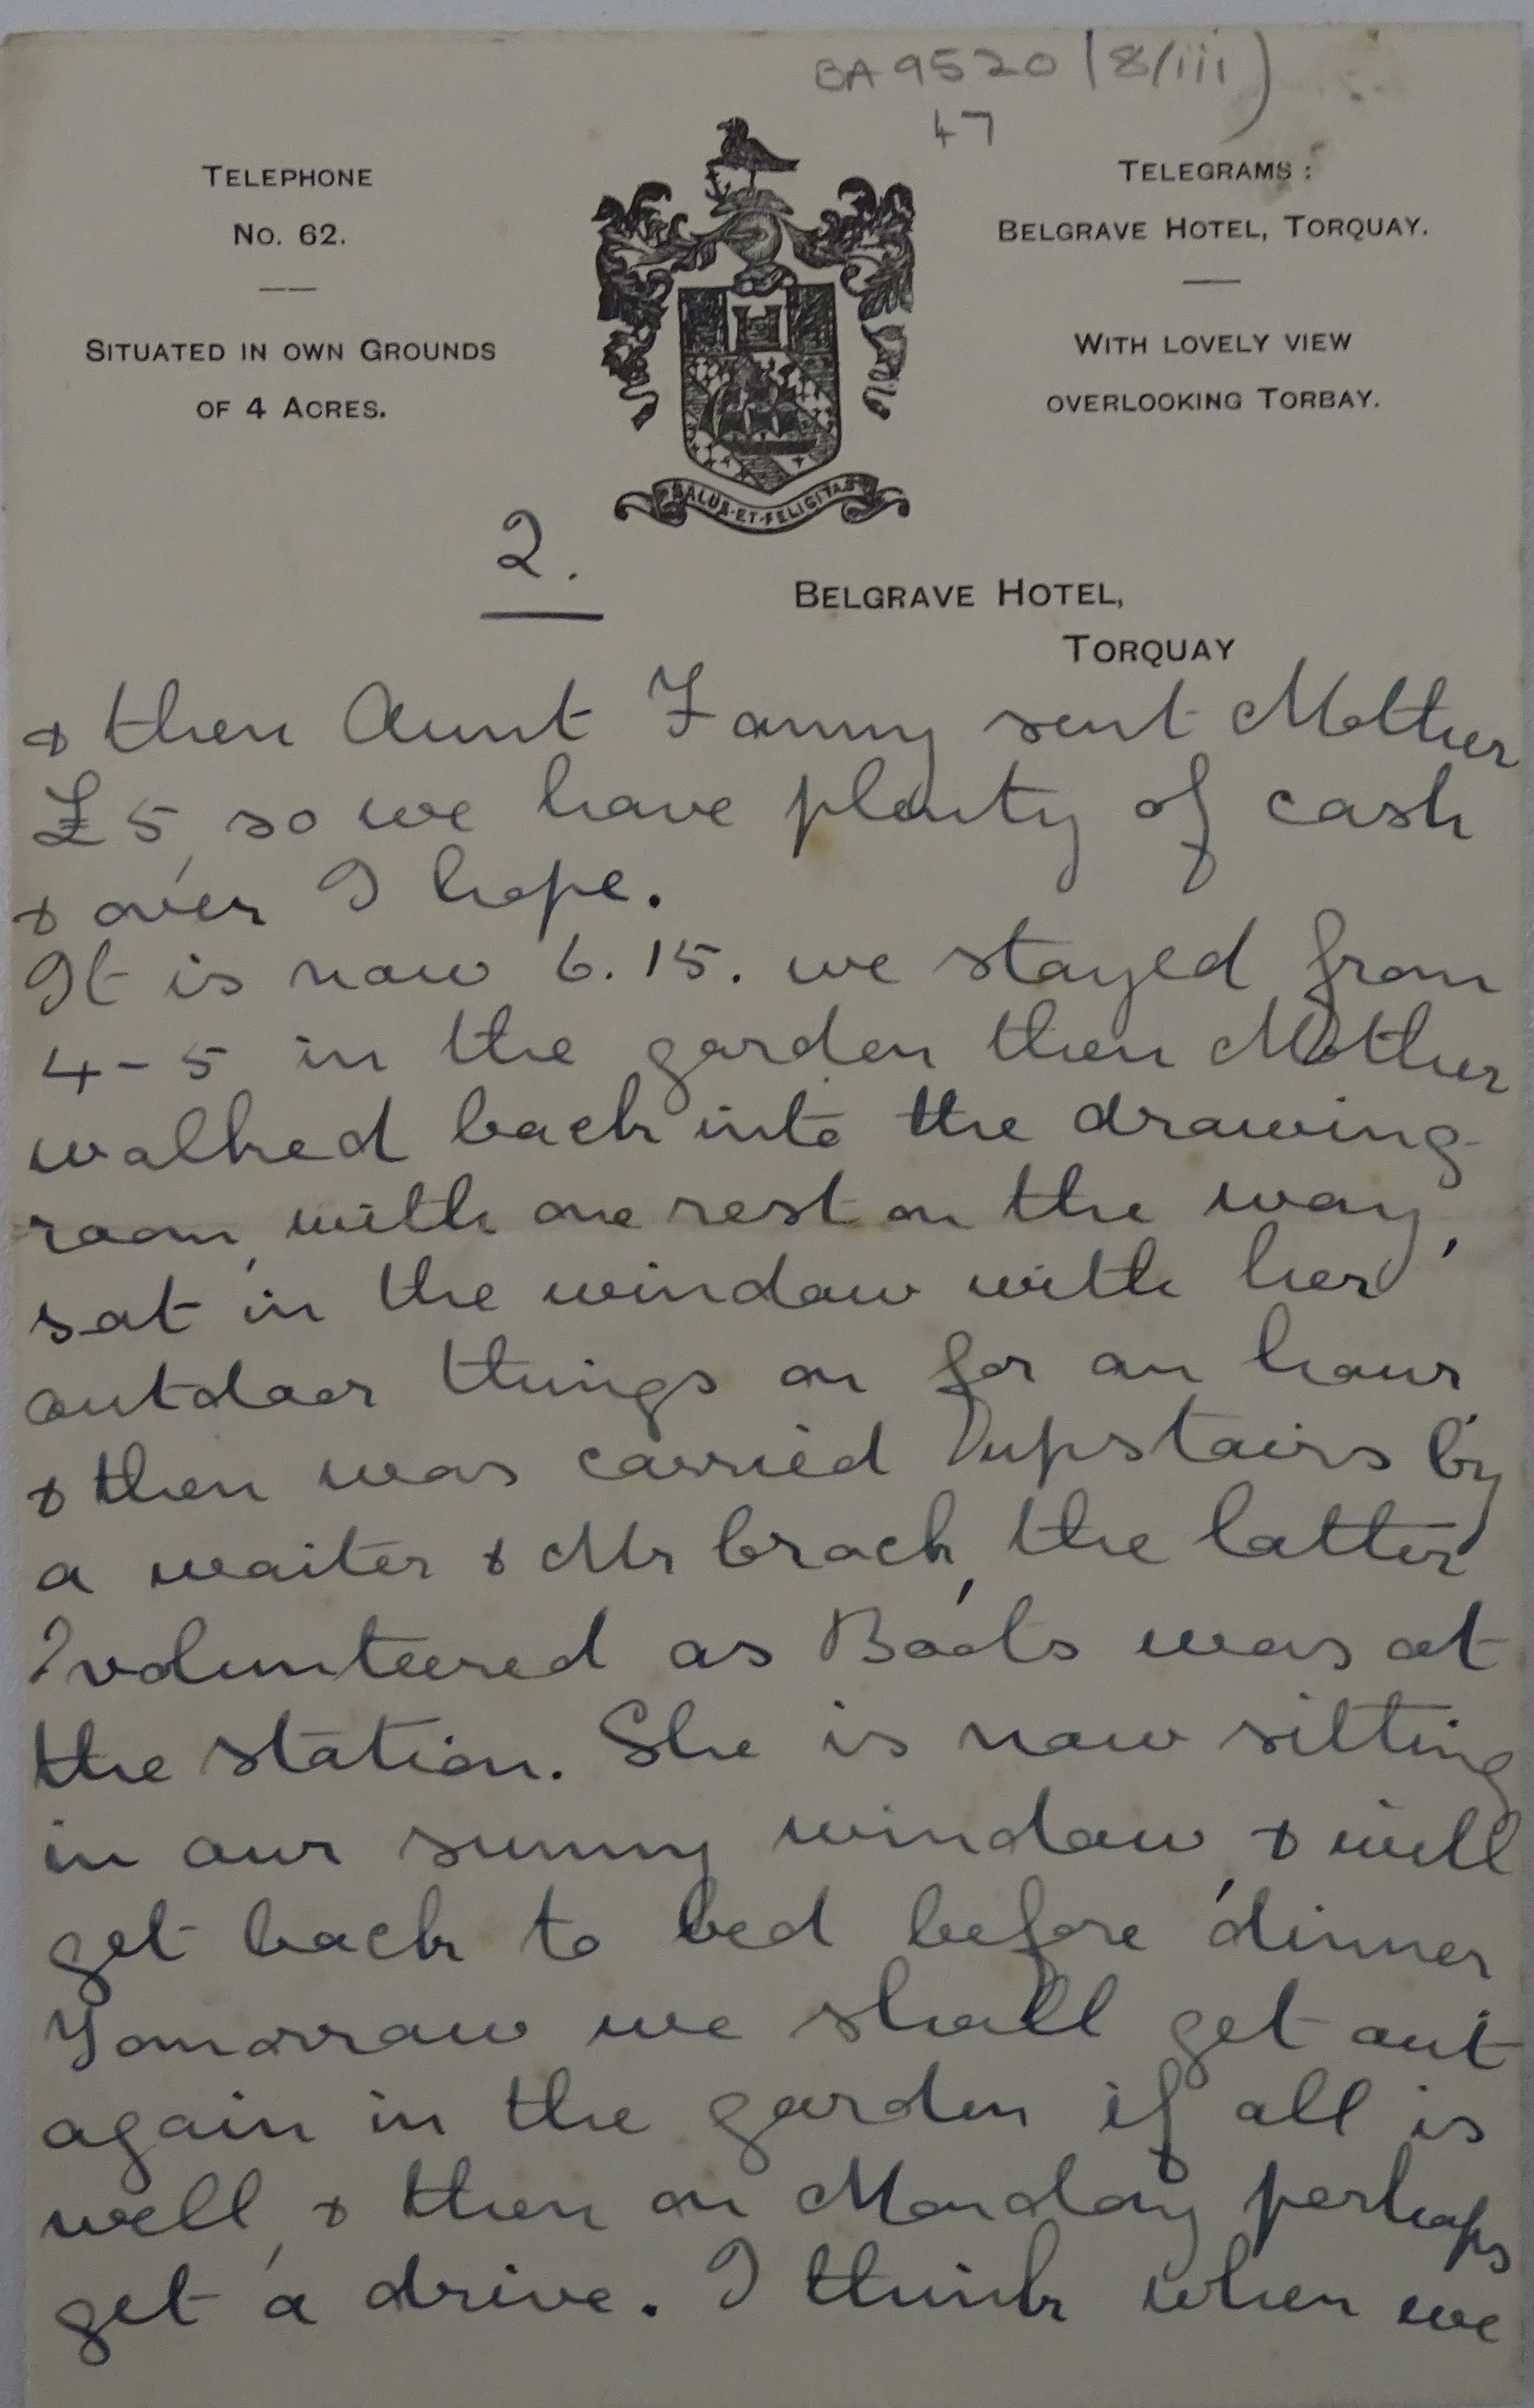 BA 9520 (8/iii)
47
TELEPHONE
NO. 62.
SITUATED IN OWN GROUNDS
OF 4 ACRES.
TELEGRAMS :
BELGRAVE HOTEL, TORQUAY.
WITH LOVELY VIEW
OVERLOOKING TORBAY.
SALUS·ET·FELICITAS
2.
BELGRAVE HOTEL,
TORQUAY
& then Aunt Fanny sent Mother
£5, so we have plenty of cash
& over I hope.
It is now 6.15. we stayed from
4-5 in the garden then Mother
walked back into the drawing-
room, with one rest on the way,
sat in the window with her
outdoor things on for an hour,
& then was carried upstairs by
a waiter & Mr brack, the latter
volunteered as Boots was at
the station. She is now sitting
in our sunny window, & will
get back to bed before dinner
Tomorrow we shall get out
again in the garden if all is
well, & then on Monday perhaps
get a drive. I think when we